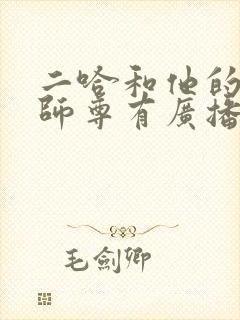 二哈和他的
師尊有廣播
毛劍卿